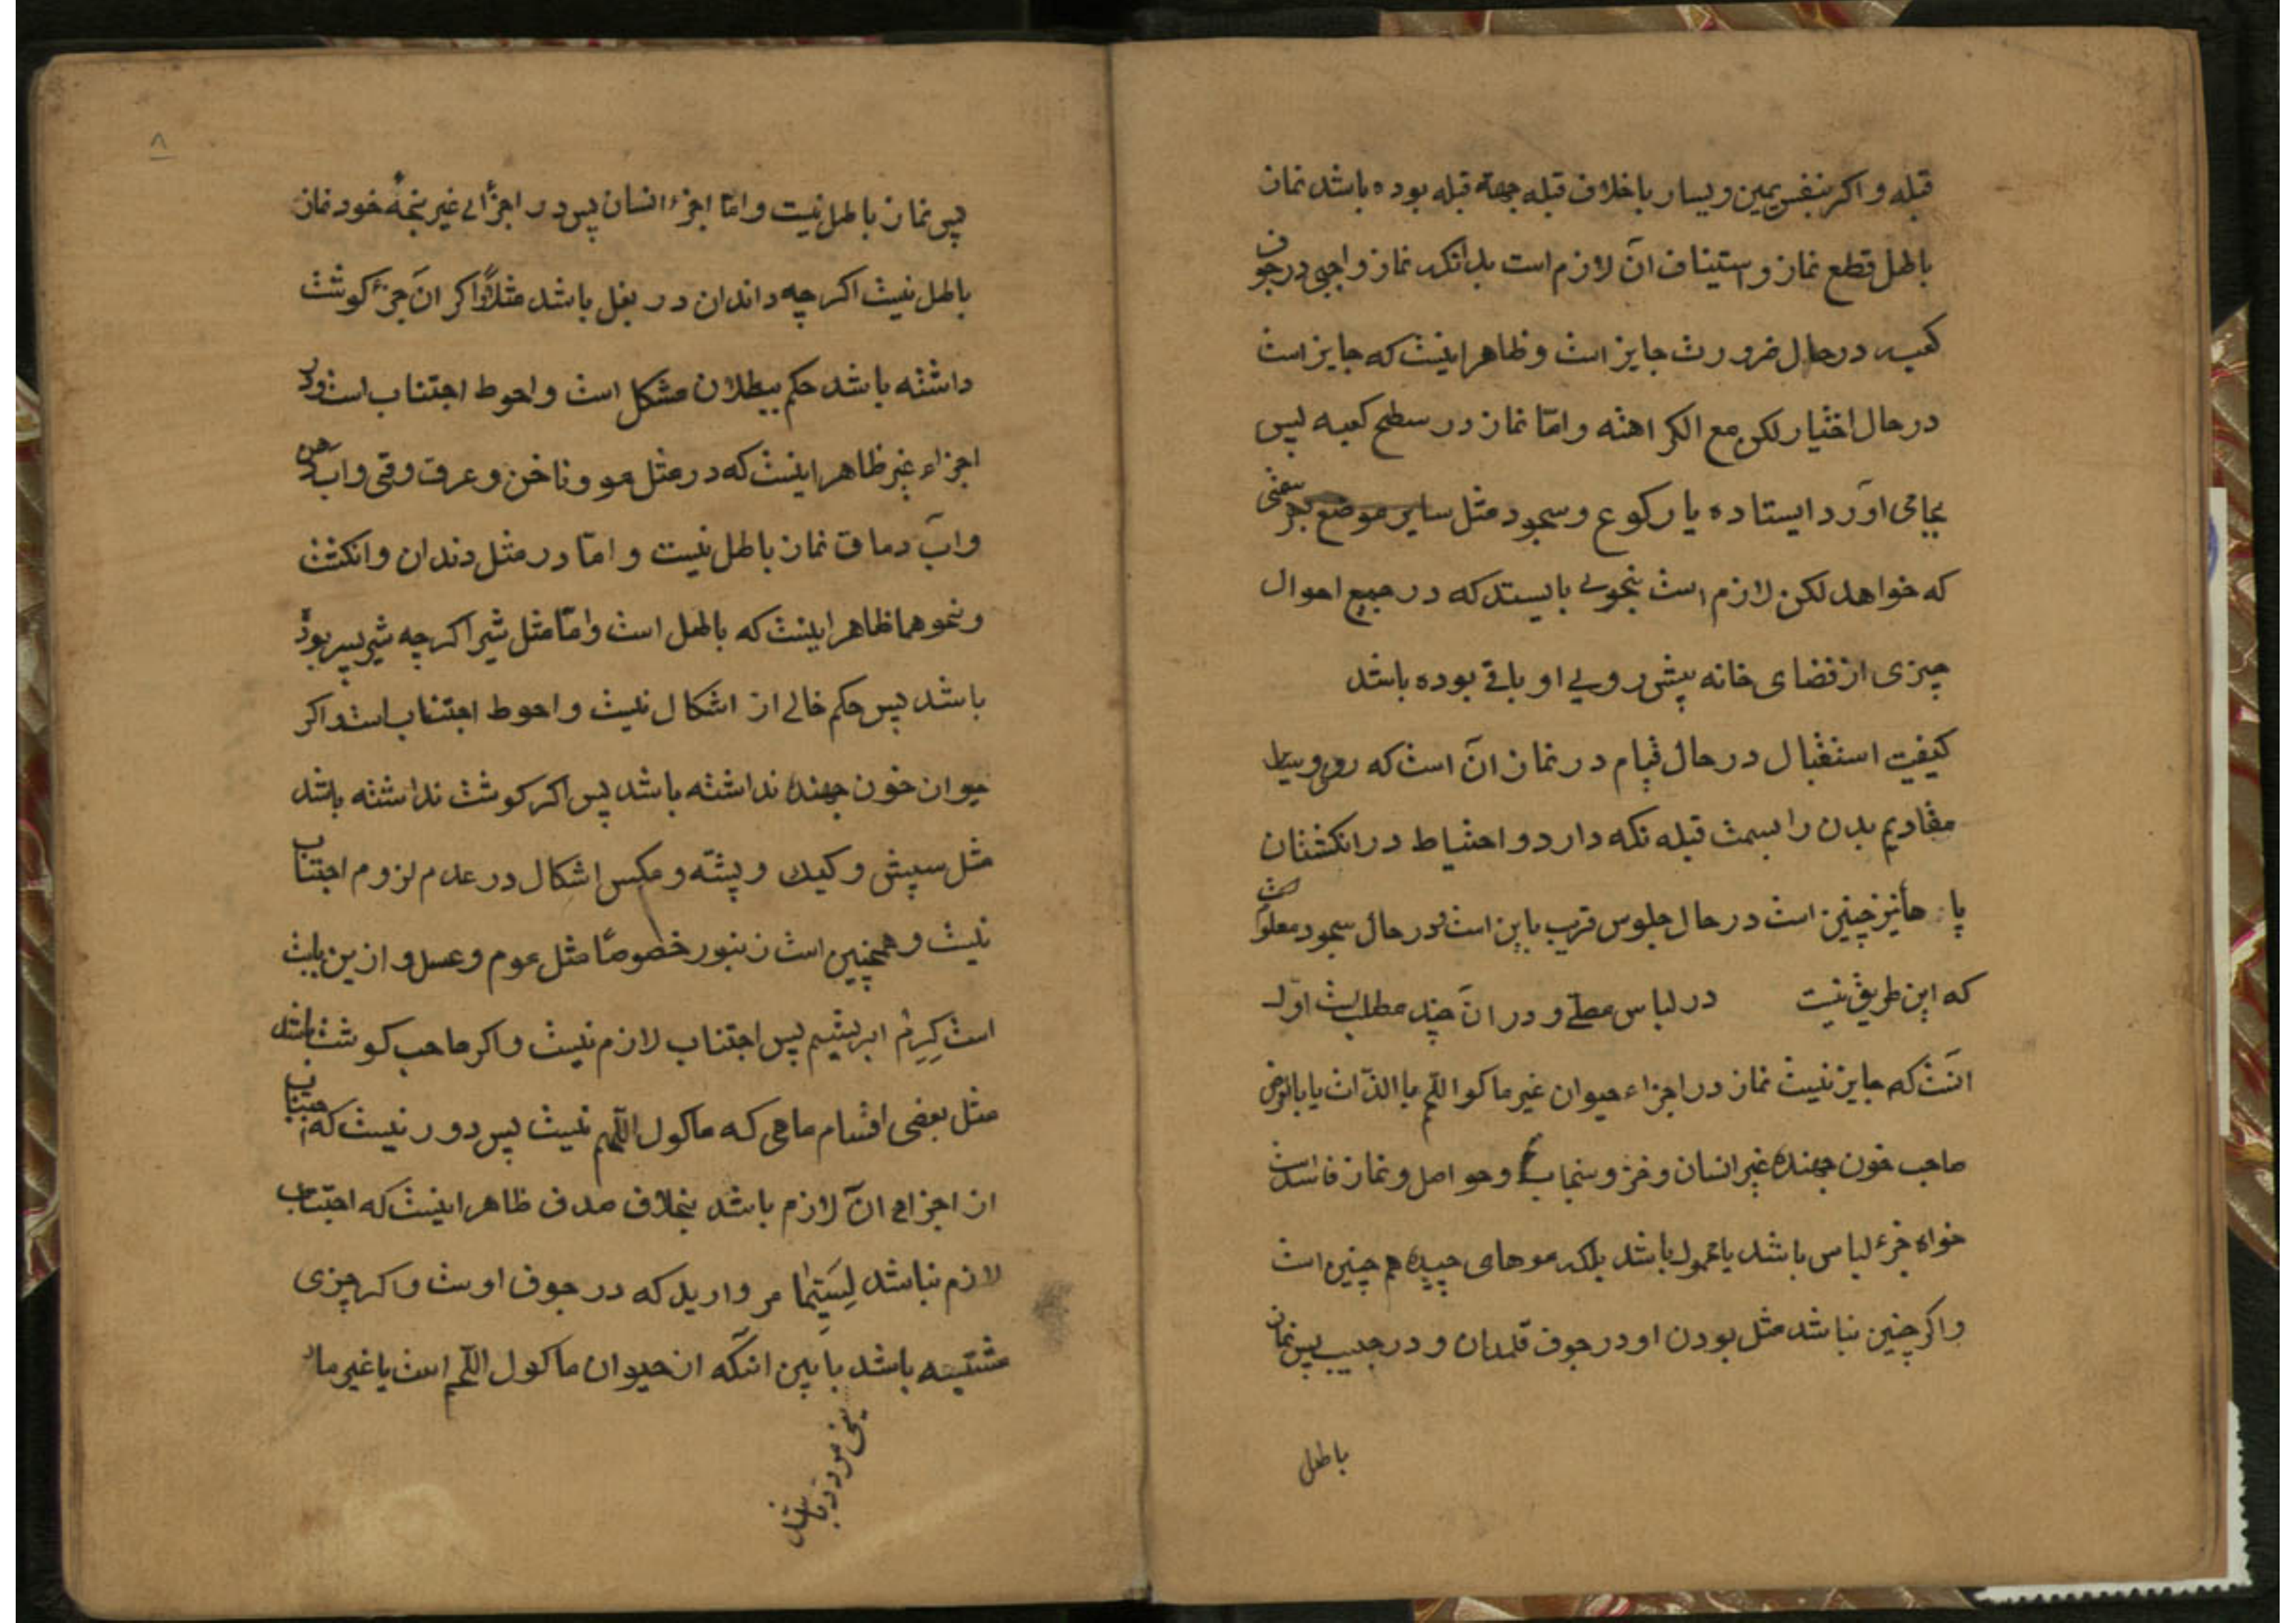 قبله و اکر بنفس یمین و یسار یا خلاف قبله جهة قبله بوده باشد نماز
باطل قطع نماز و استیناف آن لازم است بدانکه نماز واجبی در جوف
کعبه در حال ضرورت جایز است و ظاهر اینست که جایز است
در حال اختیار لکن مع الکراهته و امّا نماز در سطح کعبه پس
بجا می آورد ایستاده با رکوع و سجود مثل سایر موضع بهر سمتی
که خواهد لکن لازم است بنحوی بایستد که در جمیع احوال
چیزی از فضای خانه پیش رویی او باقی بوده باشد
کیفیت استقبال در حال قیام در نماز آن است که روی و
مقادیم بدن را بسمت قبله نکه دارد و احتیاط در انکشتان
پا ها نیز چنین است در حال جلوس قریب باین است و در حال سجود معلوم است
که این طریق نیست در لباس مصلّی و در آن چند مطلب است اوّل
انست که جایز نیست نماز در اجزاء حیوان غیر ماکو اللّحم با الذّات یا بالعرض
صاحب خون جهنده غیر انسان و خز و سنجاب و حواصل و نماز فاسد است
خواه جزء لباس باشد یا محمول باشد بلکه موهای چپیده هم چنین است
و اکر چنین نباشد مثل بودن او در جوف قلمدان و در جیب پس نماز
باطل
۸
پس نماز باطل نیست و امّا اجزء انسان پس در اجزأی غیر منجّه خود نماز
باطل نیست اکر چه داندان در بغل باشد مثلاً و اکر آن جزء کوشت
داشته باشد حکم ببطلان مشکل است و احوط اجتناب است و در
اجزاء غیر ظاهر اینست که در مثل مو و ناخن و عرق و قی و آب دهن
و آب دماق نماز باطل نیست و امّا در مثل دندان و انکشت
و نحو هما ظاهر اینست که باطل است و امّا مثل شیر اکر چه شیر پسر بوده
باشد پس حکم خالی از اشکال نیست و احوط اجتناب است و اکر
حیوان خون جهنده نداشته باشد پس اکر کوشت نداشته باشد
مثل سپش و کیک و پشّه و مکس اشکال در عدم لزوم اجتناب
نیست و همچنین است زنبور خصوصًا مثل موم و عسل و ازین بابت
است کِرِم ابریشیم پس اجتناب لازم نیست و اکر صاحب کوشت باشد
مثل بعضی اقسام ماهی که ماکول اللّحم نیست پس دور نیست که اجتناب
از اجزای آن لازم باشد بخلاف صدف ظاهر اینست که اجتناب
لازم نباشد لِسَیّما مر وارید که در جوف اوست و اکر چیزی
مشتبه باشد باپین انکه از حیوان ماکول اللّحم است یا غیر ماء